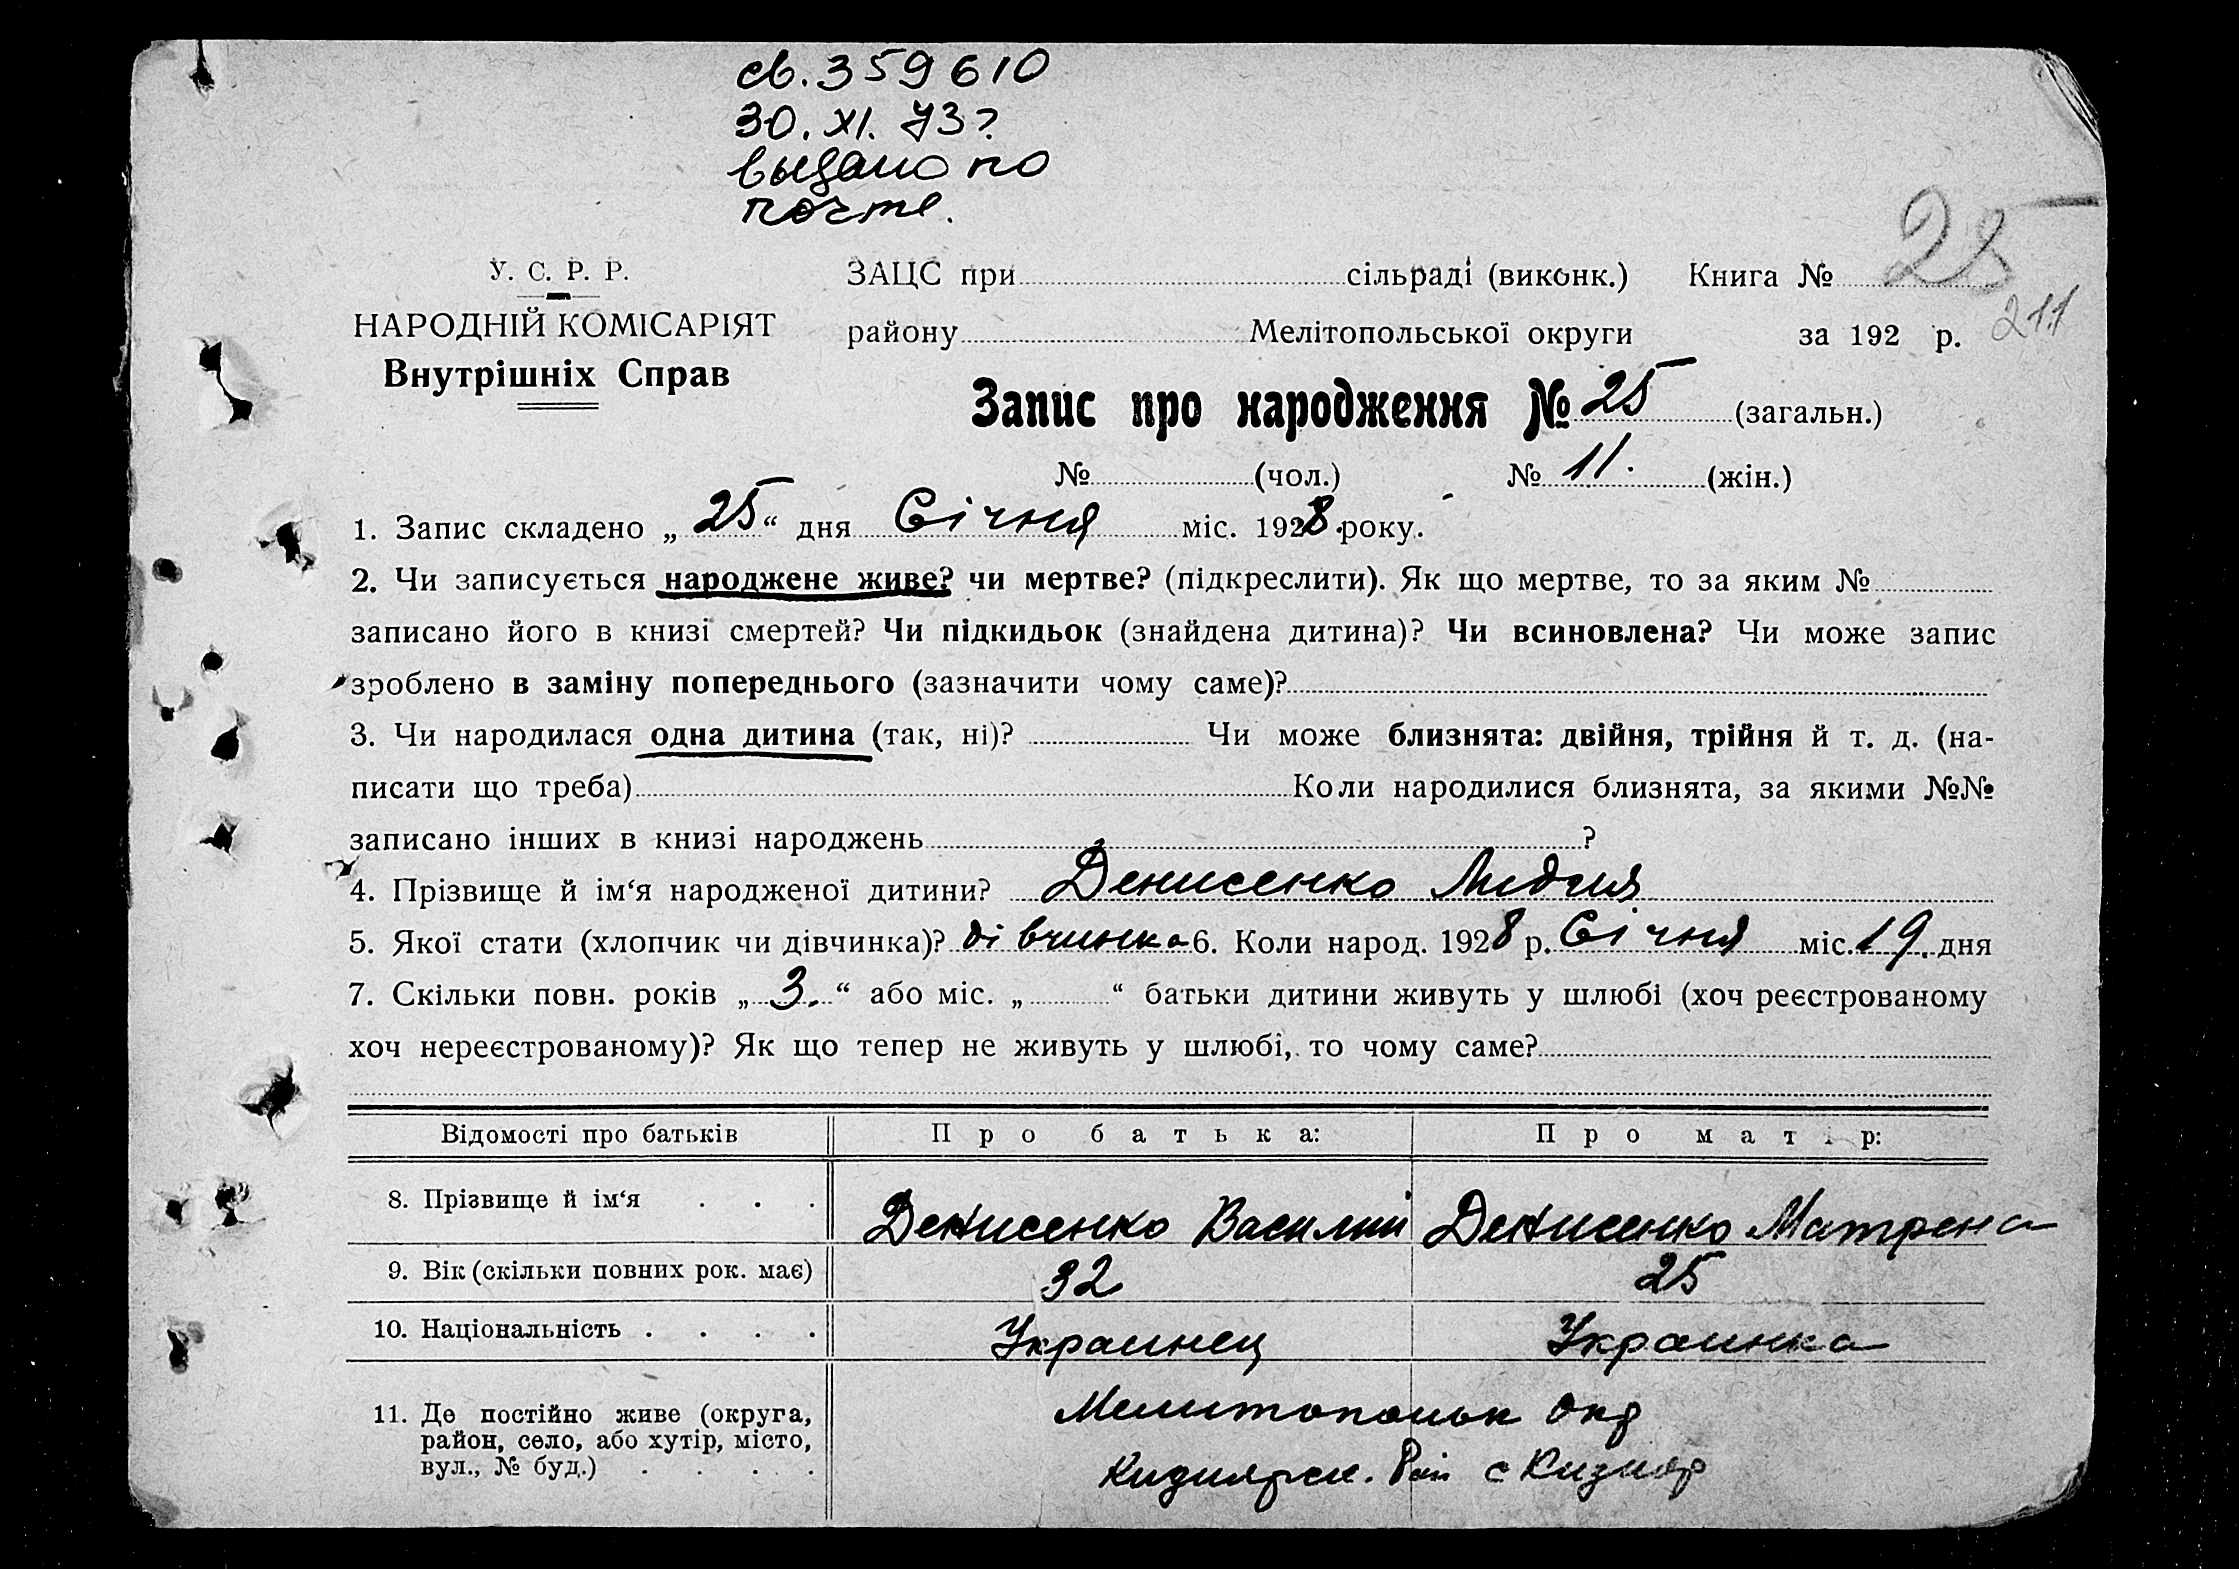 св. 359610
30. XI. 73?
выдано по
почте.
25
211
У. С. Р. Р.
НАРОДНІЙ КОМІСАРІЯТ
Внутрішніх Справ
ЗАЦС при сільраді (виконк.) Книга №
району Мелітопольської округи за 192 р.
Запис про народження № 25 (загальн.)
№ (чол.) № 11. (жін.)
1. Запис складено „25“ дня Січня міс. 1928 року.
2. Чи записується народжене живе? чи мертве? (підкреслити). Як що мертве, то за яким №
записано його в книзі смертей? Чи підкидьок (знайдена дитина)? Чи всиновлена? Чи може запис
зроблено в заміну попереднього (зазначити чому саме)?
3. Чи народилася одна дитина (так, ні)? Чи може близнята: двійня, трійня й т. д. (на-
писати що треба) Коли народилися близнята, за якими №№
записано інших в книзі народжень ?
4. Прізвище й ім‘я народженої дитини? Денисенко Лидия
5. Якої стати (хлопчик чи дівчинка)? дівчинка 6. Коли народ. 1928 р. Січня міс. 19. дня
7. Скільки повн. років „3.“ або міс. „ “ батьки дитини живуть у шлюбі (хоч реєстрованому
хоч нереєстрованому)? Як що тепер не живуть у шлюбі, то чому саме?
Відомості про батьків Про батька: Про матір:
8. Прізвище й ім‘я . . . Денисенко Василий Денисенко Матрена
9. Вік (скільки повних рок. має) 32 25
10. Національність . . . . Украинец Украинка
11. Де постійно живе (округа,
район, село, або хутір, місто,
вул., № буд.) . . . .
Мелитопольск окр
Кизиярск. Рай с Кизияр